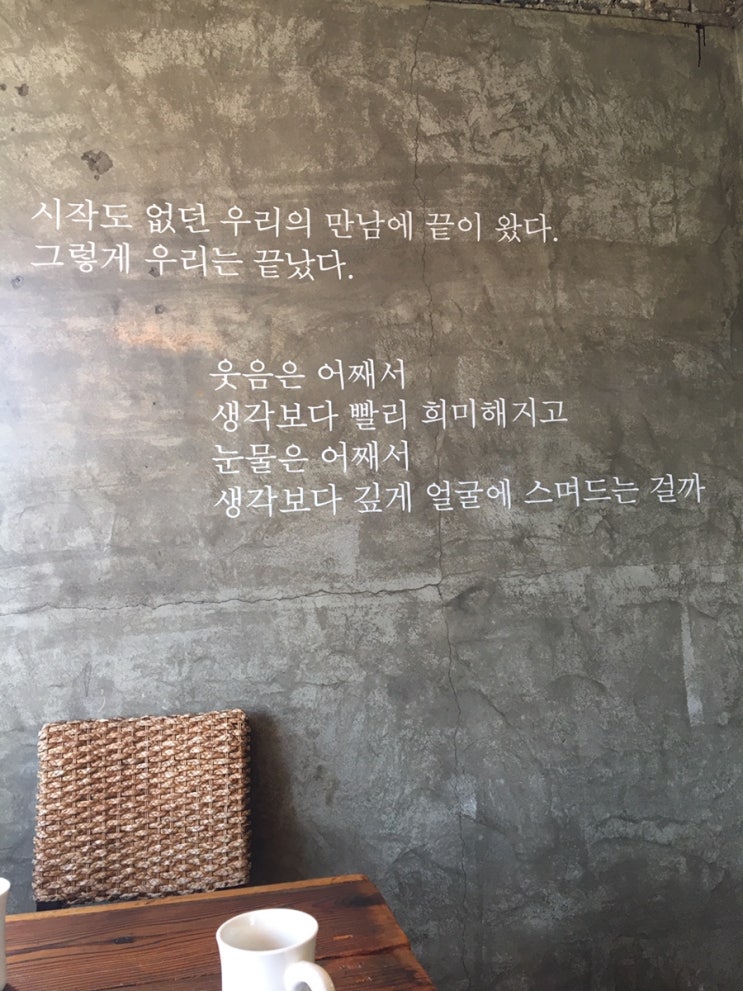 시작도 없던 우리의 만남에 끝이 왔다.
그렇게 우리는 끝났다.
웃음은 어째서
생각보다 빨리 희미해지고
눈물은 어째서
생각보다 깊게 얼굴에 스며드는 걸까